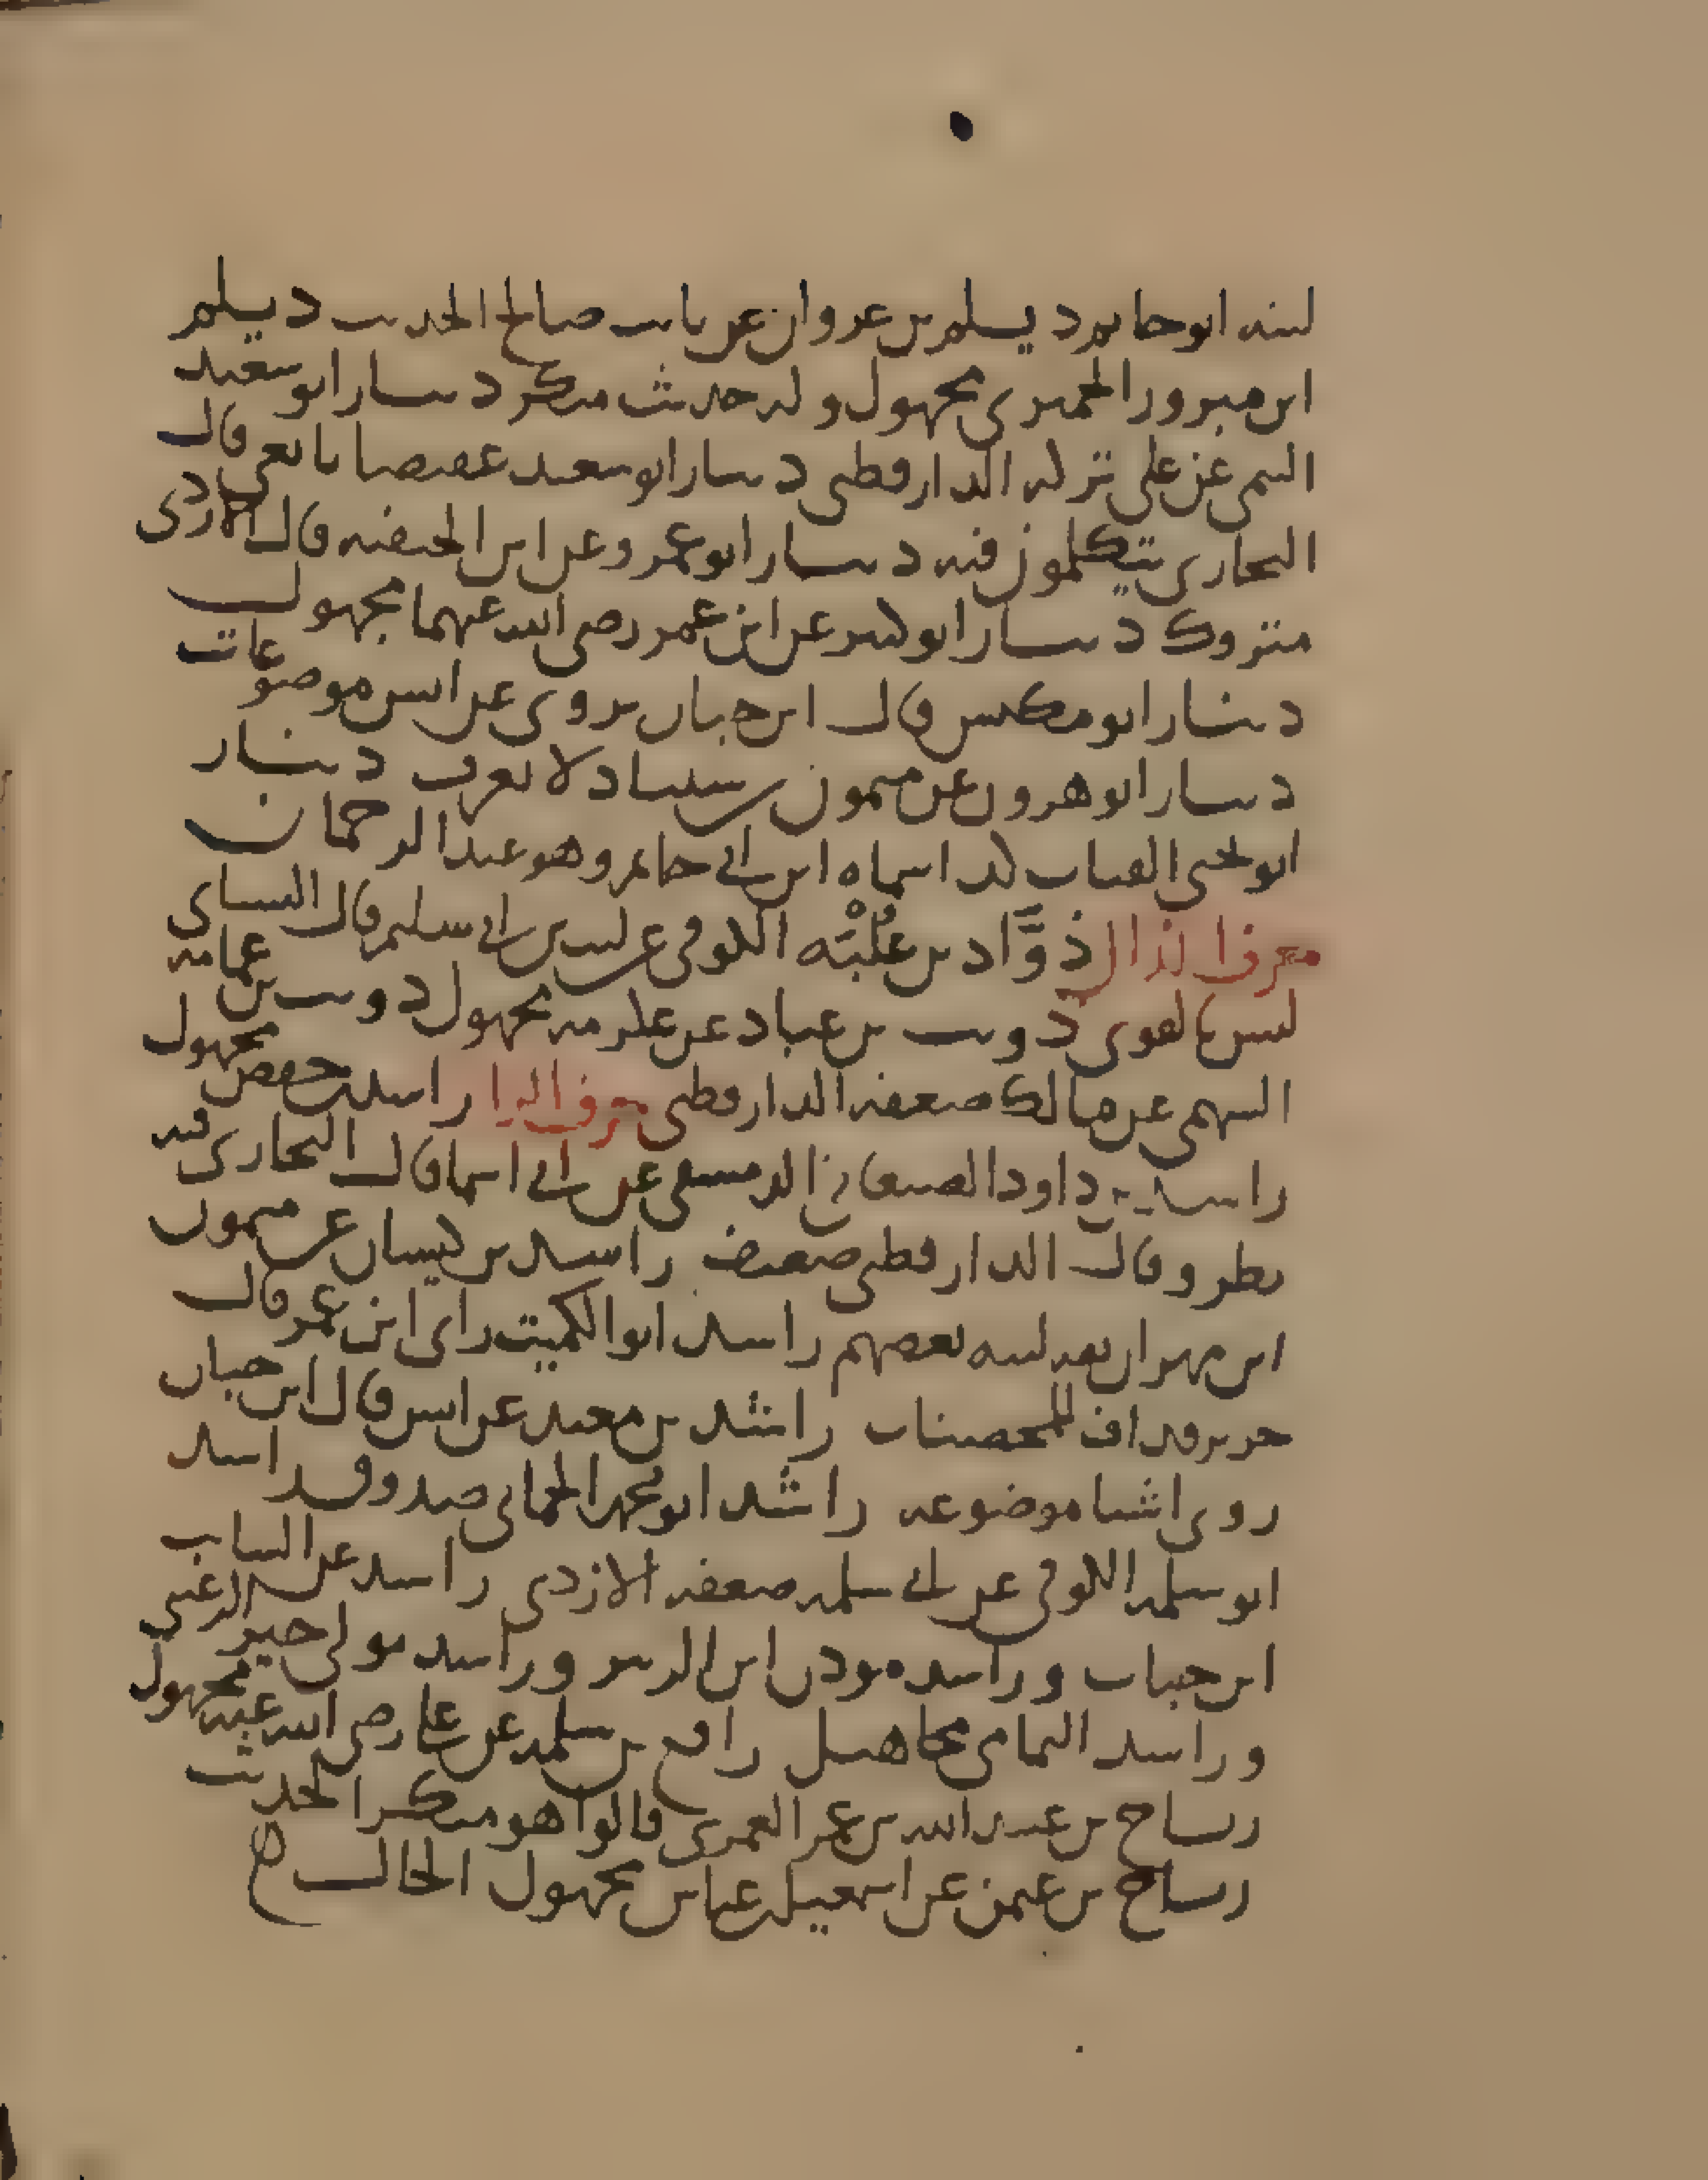 لينه ابو حاتم ديلم بن غزوان عن ثابت صالح الحديث ديلم
ابن فيروز الحميري مجهول وله حديث منكر دينار ابو سعيد
التيمي عن علي تركه الدارقطني دينار ابو سعيد عقيصا تابعي قال
البخاري يتكلمون فيه دينار ابو عمرو عن ابن الحنفية قال الازدي
متروك دينار ابو كثير عن ابن عمر رضي الله عنهما مجهول
دينار ابو مكيس قال ابن حبان يروي عن انس موضوعات
دينار ابو هرون عن ميمون بن سنباد لا يعرف دينار
ابو يحيى القتات كذا سماه ابن ابي حاتم وهو عبد الرحمان
حرف الذال ذوَّاد بن عُلْبَه الكوفي عن ليث بن ابي سليم قال النساي
ليس بالقوي ذويب بن عباد عن عكرمه مجهول ذويب بن عمامه
السهمي عن مالك ضعفه الدارقطني حرف الرا راشد بن حفص مجهول
راشد بن داود الصنعاني الدمشقي عن ابي اسما قال البخاري فيه
نظر وقال الدارقطني ضعيف راشد بن كيسان عن ميمون
ابن مهران ثقه لينه بعضهم راشد ابو الكميت راى ابن عمر قال
جرير قذاف للمحصنات راشد بن معبد عن انس قال ابن حبان
روى اشيا موضوعه راشد ابو محمد الحماني صدوق راشد
ابو سلمه الكوفي عن ابي سلمه ضعفه الازدي راشد عن السايب
ابن خباب وراشد موذن ابن الزبير وراشد مولى خير الرعيني
وراشد اليمامي مجاهيل رافع بن سلمه عن علي رضي الله عنه مجهول
رباح بن عبيد الله بن عمر العمري قالوا هو منكر الحديث
رباح بن عثمن عن اسمعيل بن عياش مجهول الحال